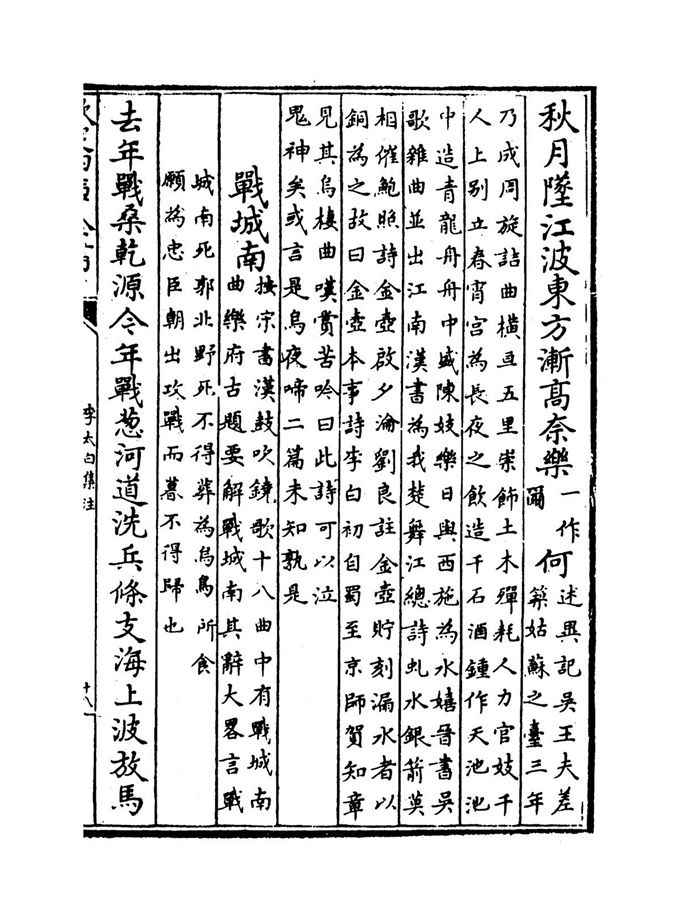 秋月墜江波東方漸髙奈樂一作爾何述異記吳王夫差
築姑蘇之臺三年
乃成周旋詰曲橫亘五里崇飾土木殫耗人力官妓千
人上别立春宵宫為長夜之飲造千石酒鍾作天池池
中造青龍舟舟中盛陳妓樂日與西施為水嬉晉書吳
歌雜曲並出江南漢書為我楚舞江總詩虬水銀箭莫
相催鮑照詩金壺啟夕淪劉良註金壺貯刻漏水者以
銅為之故曰金壺本事詩李白初自蜀至京師賀知章
見其烏棲曲嘆賞苦吟曰此詩可以泣
鬼神矣或言是烏夜啼二篇未知孰是
戰城南按宗書漢鼓吹鐃歌十八曲中有戰城南
曲樂府古題要解戰城南其辭大畧言戰
城南死郭北野死不得葬為烏鳥所食
願為忠臣朝出攻戰而暮不得歸也
去年戰桑乾源今年戰葱河道洗兵條支海上波放馬
李太白集注
十八